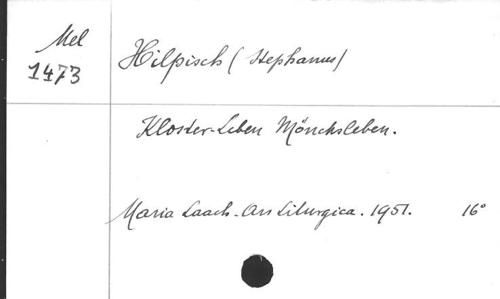 Mel
1473
Hilpisch (Stephanus)
Kloster-Leben Mönchsleben.
Maria Laach - Ars Liturgica. 1951. 16°